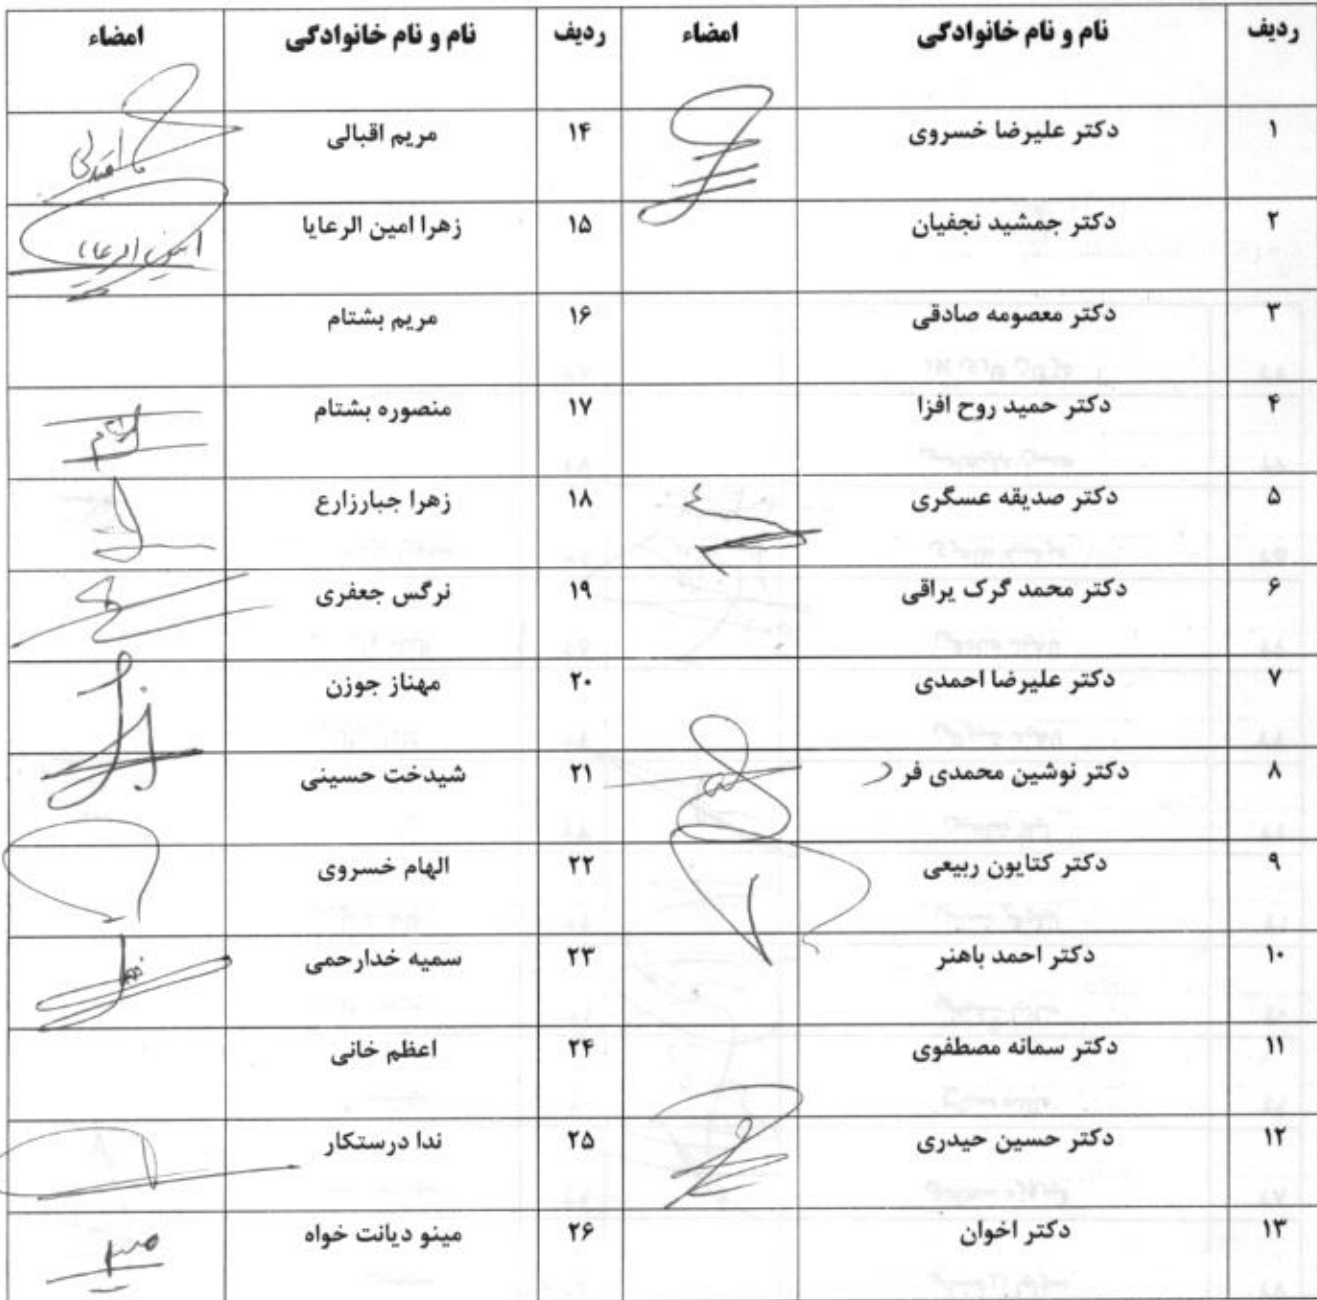 ردیف نام و نام خانوادگی امضاء ردیف نام و نام خانوادگی امضاء
۱ دکتر علیرضا خسروی ۱۴ مریم اقبالی
۲ دکتر جمشید نجفیان ۱۵ زهرا امین الرعایا امین الرعایا
۳ دکتر معصومه صادقی ۱۶ مریم بشتام
۴ دکتر حمید روح افزا ۱۷ منصوره بشتام
۵ دکتر صدیقه عسگری ۱۸ زهرا جبارزارع
۶ دکتر محمد گرک یراقی ۱۹ نرگس جعفری
۷ دکتر علیرضا احمدی ۲۰ مهناز جوزن
۸ دکتر نوشین محمدی فر ۲۱ شیدخت حسینی
۹ دکتر کتایون ربیعی ۲۲ الهام خسروی
۱۰ دکتر احمد باهنر ۲۳ سمیه خدارحمی
۱۱ دکتر سمانه مصطفوی ۲۴ اعظم خانی
۱۲ دکتر حسین حیدری ۲۵ ندا درستکار
۱۳ دکتر اخوان ۲۶ مینو دیانت خواه